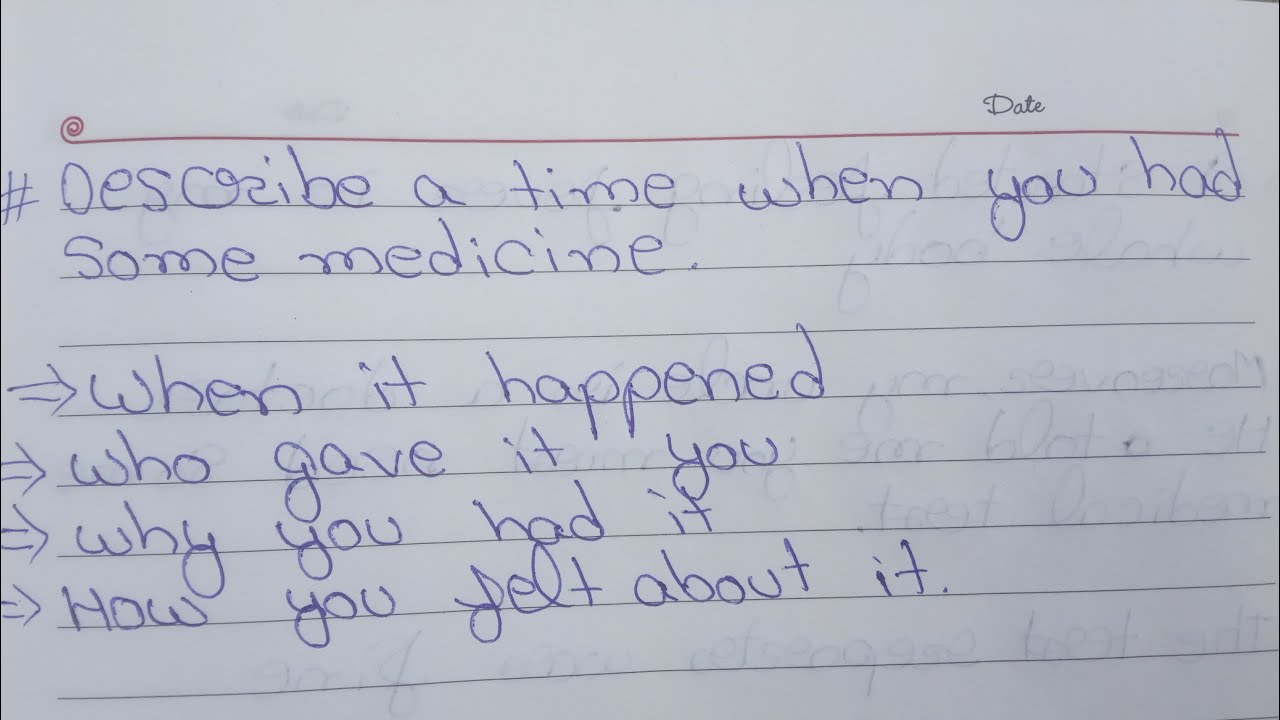 Date
# Describe a time when you had
some medicine.
⇒ when it happened
⇒ who gave it you
⇒ why you had it
⇒ How you felt about it.